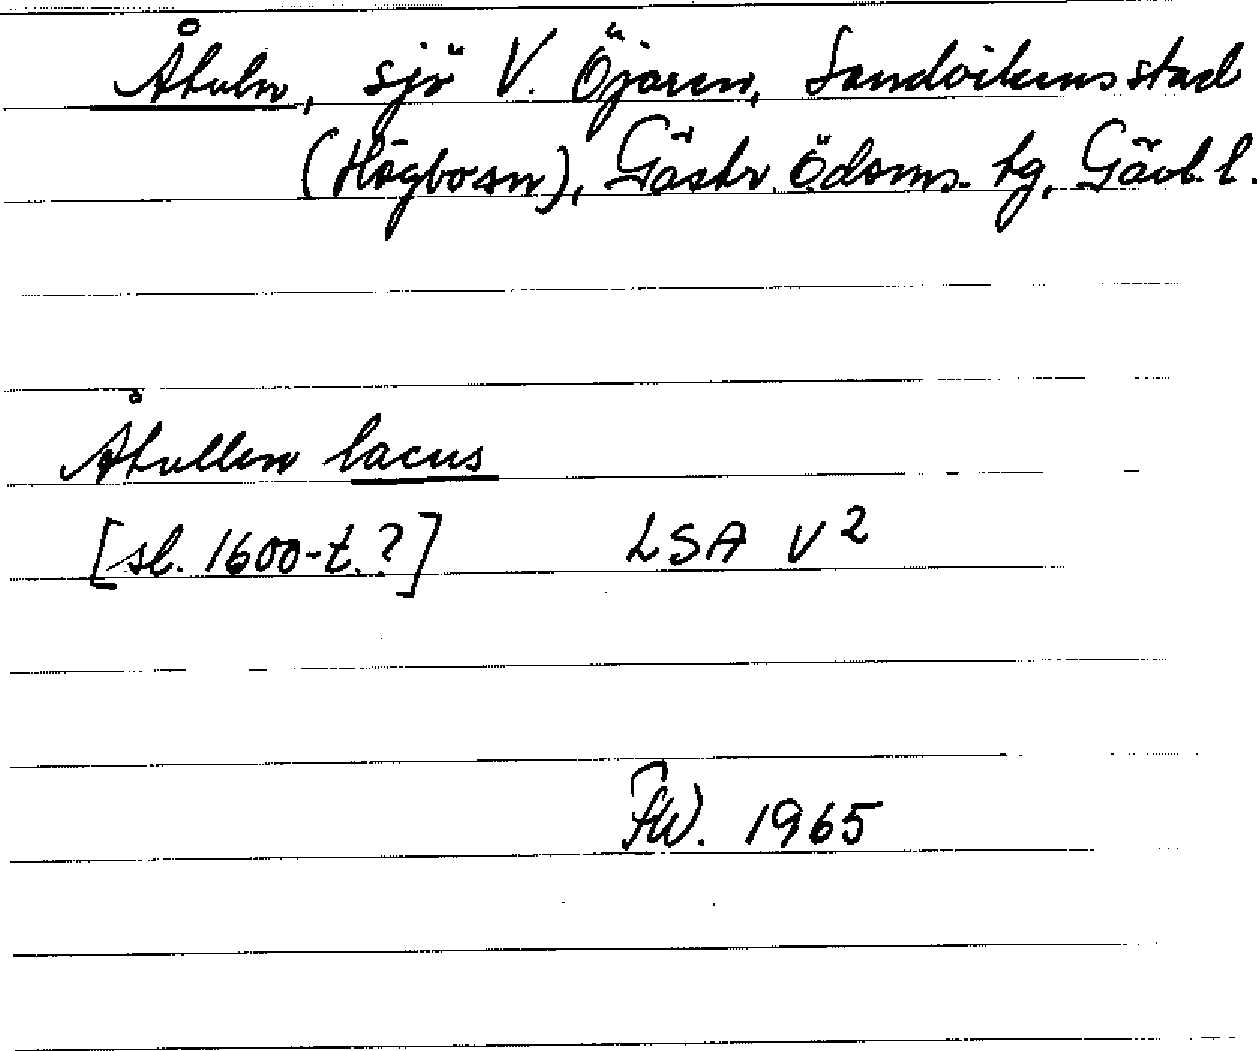 Åkuln, sjö V. Öjaren, Sandvikens stad
(Högbo sn), Gästr. Ödoms. tg, Gävl. l.
Åkullen lacus
[sl. 1600-t.?] LSA V2
FW. 1965